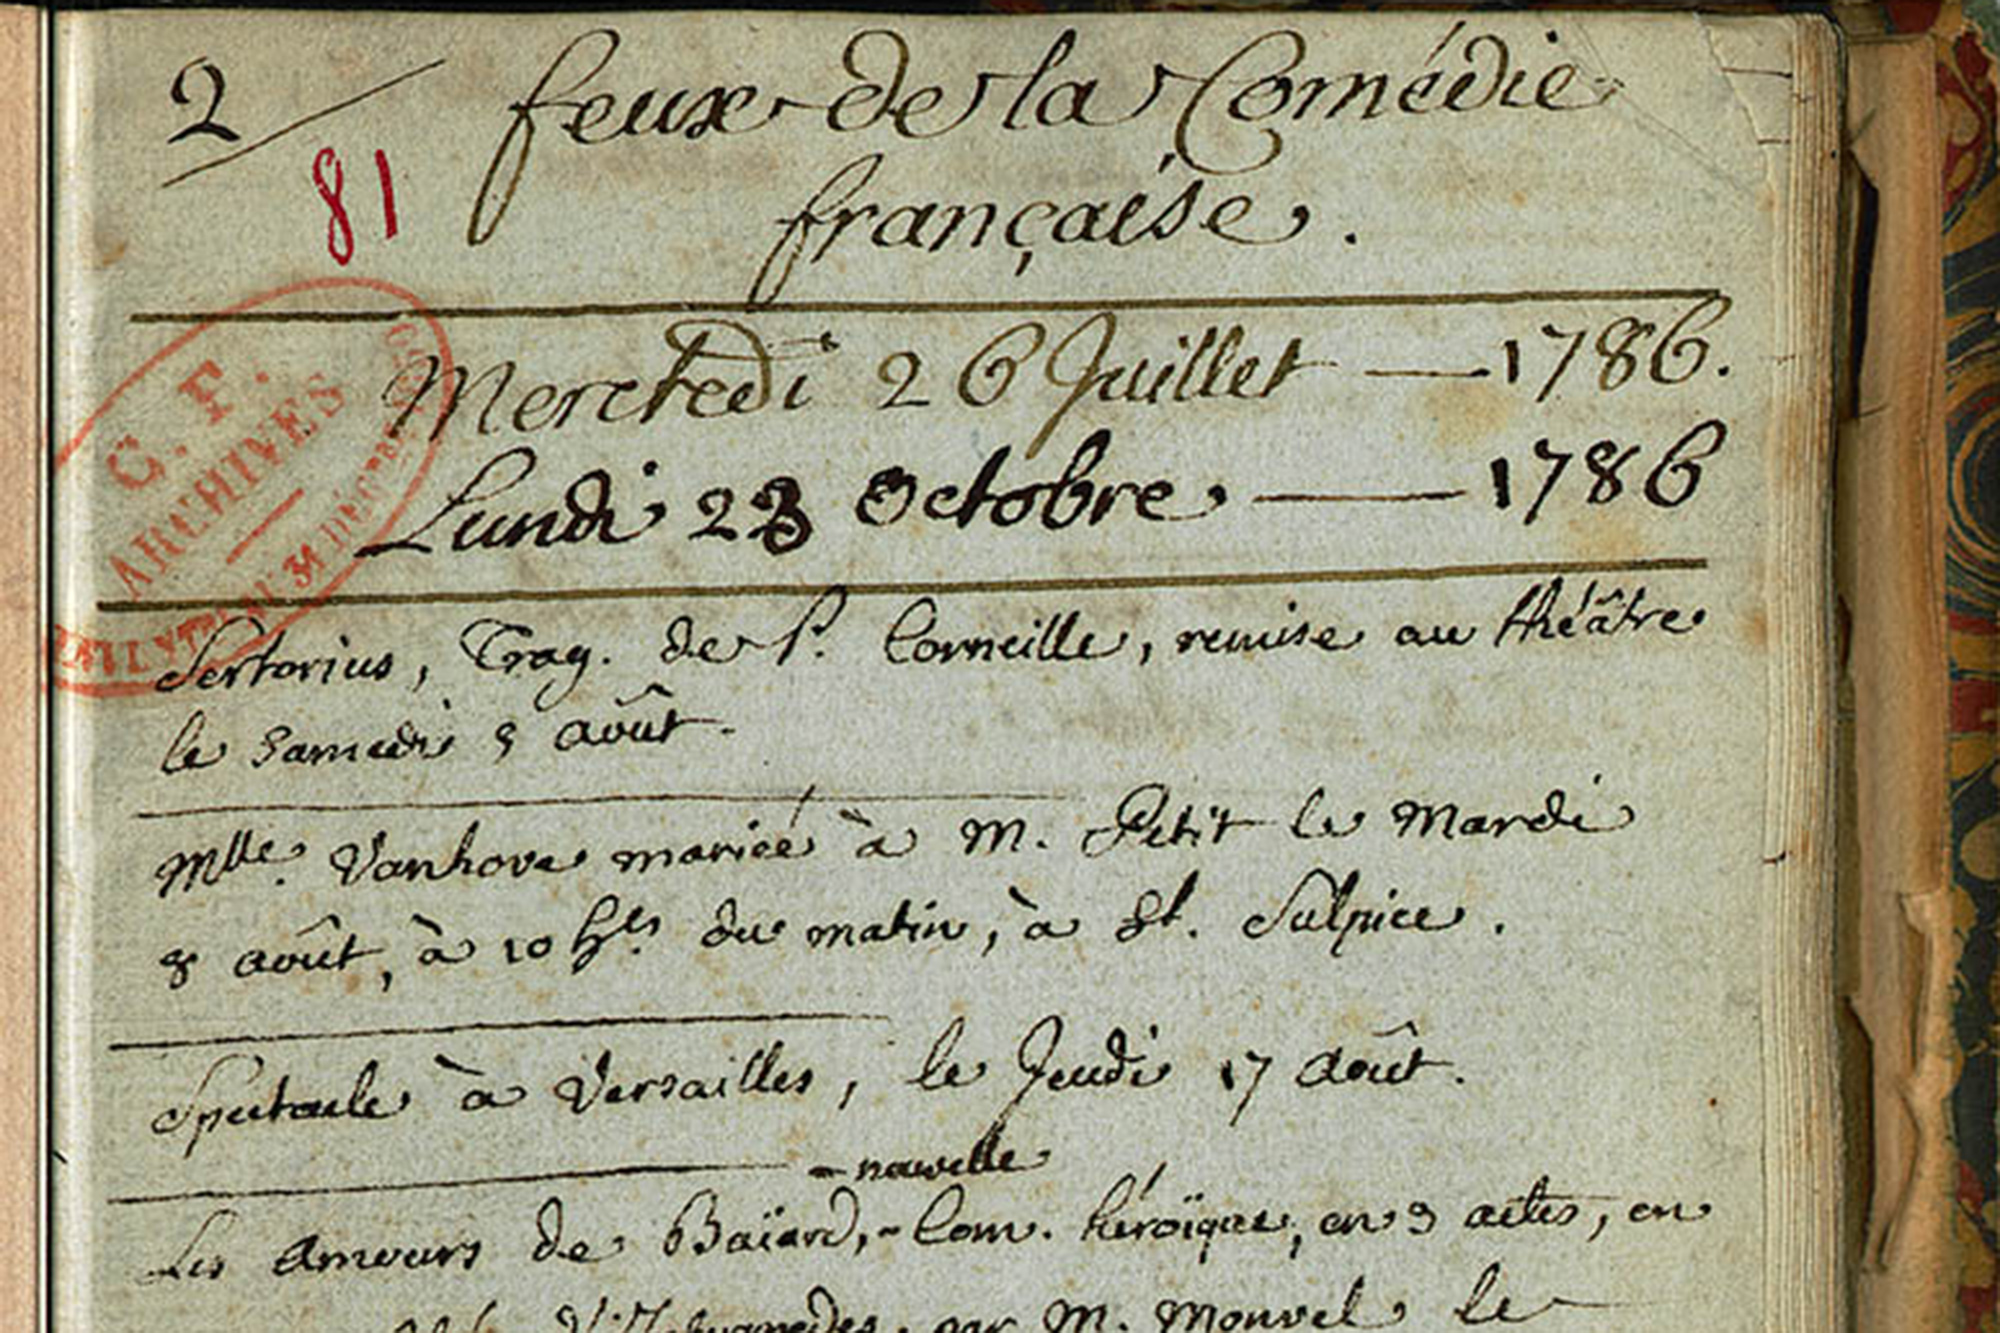 2 feux de la Comédie
81
française.
Mercredi 26 Juillet — 1786.
Lundi 23 Octobre — 1786
C. F.
ARCHIVES
31 DÉCEMBRE
Sertorius, Trag. de P. Corneille, remise au théâtre
le Samedi 5 août.
Mlle. Vanhove mariée à M. Petit le Mardi
8 août, à 10 hes. du matin, à St. Sulpice.
Spectacle à Versailles, le Jeudi 17 Août.
nouvelle
Les Amours de Baïard, - Com. héroïque, en 3 actes, en
par M. Monvel le